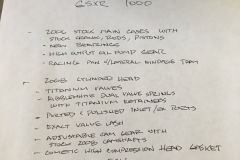 GSXR 1000
- 2006 STOCK MAIN CASES WITH
STOCK CRANK, RODS, PISTONS
- NEW BEARINGS
- HIGH OUTPUT OIL PUMP GEAR
- RACING PAN W/LATERAL WINDAGE TRAY
- 2008 CYLINDER HEAD
- TITANIUM VALVES
- DUAL VALVE SPRINGS
WITH TITANIUM RETAINERS
- PORTED & POLISHED INLET/EX PORTS
- EXACT VALVE LASH
- ADJUSTABLE CAM GEAR WITH
STOCK 2008 CAMSHAFTS
- COMETIC HIGH COMPRESSION HEAD GASKET